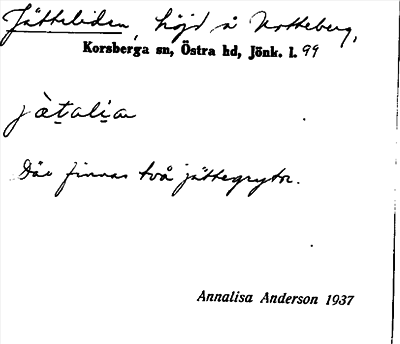 Jätteliden, höjd å Notteberg,
Korsberga sn, Östra hd, Jönk. l. 99
jàt̲ali̲an
Där finnas två jättegrytor.
Annalisa Anderson 1937